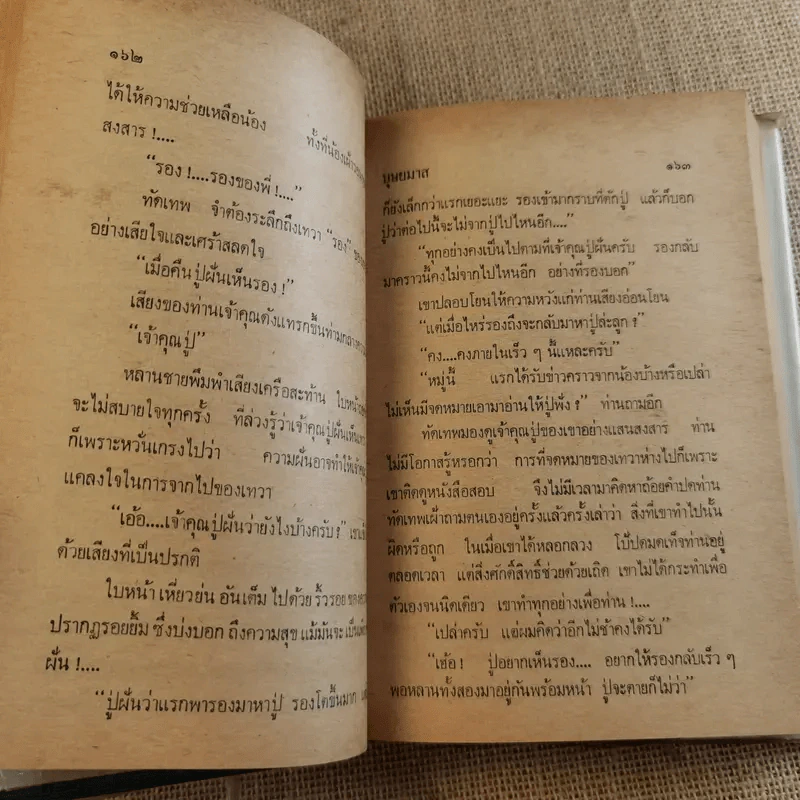 ๑๖๒
ได้ให้ความช่วยเหลือน้อง ทั้งที่น้อง
สงสาร !....
“รอง !....รองของพี่ !....”
ทัดเทพ จำต้องระลึกถึงเทวา “รอง”
อย่างเสียใจและเศร้าสลดใจ
“เมื่อคืนปู่ฝันเห็นรอง !”
เสียงของท่านเจ้าคุณดังแทรกขึ้นท่ามกลาง
“เจ้าคุณปู่”
หลานชายพึมพำเสียงเครือสะท้าน ใบหน้า
จะไม่สบายใจทุกครั้ง ที่ล่วงรู้ว่าเจ้าคุณปู่ฝันเห็น
ก็เพราะหวั่นเกรงไปว่า ความฝันอาจทำให้
แคลงใจในการจากไปของเทวา
“เอ้อ....เจ้าคุณปู่ฝันว่ายังไงบ้างครับ ?”
ด้วยเสียงที่เป็นปรกติ
ใบหน้า เหี่ยวย่น อันเต็ม ไปด้วย ริ้วรอย
ปรากฏรอยยิ้ม ซึ่งบ่งบอก ถึงความสุข แม้มันจะ
ฝัน !....
“ปู่ฝันว่าแรกพารองมาหาปู่ รองโตขึ้นมาก
บุษยมาส
๑๖๓
ก็ยังเล็กกว่าแรกเยอะแยะ รองเข้ามากราบที่ตักปู่ แล้วก็บอก
ปู่ว่าต่อไปนี้จะไม่จากปู่ไปไหนอีก....”
“ทุกอย่างคงเป็นไปตามที่เจ้าคุณปู่ฝันครับ รองกลับ
มาคราวนี้คงไม่จากไปไหนอีก อย่างที่รองบอก”
เขาปลอบโยนให้ความหวังแก่ท่านเสียงอ่อนโยน
“แต่เมื่อไหร่รองถึงจะกลับมาหาปู่ล่ะลูก ?”
“คง....คงภายในเร็ว ๆ นี้แหละครับ”
“หมู่นี้ แรกได้รับข่าวคราวจากน้องบ้างหรือเปล่า
ไม่เห็นมีจดหมายเอามาอ่านให้ปู่ฟัง ?” ท่านถามอีก
ทัดเทพมองดูเจ้าคุณปู่ของเขาอย่างแสนสงสาร ท่าน
ไม่มีโอกาสรู้หรอกว่า การที่จดหมายของเทวาห่างไปก็เพราะ
เขาติดดูหนังสือสอบ จึงไม่มีเวลามาคิดหาถ้อยคำปดท่าน
ทัดเทพเฝ้าถามตนเองอยู่ครั้งแล้วครั้งเล่าว่า สิ่งที่เขาทำไปนั้น
ผิดหรือถูก ในเมื่อเขาได้หลอกลวง โป้ปดมดเท็จท่านอยู่
ตลอดเวลา แต่สิ่งศักดิ์สิทธิ์ช่วยด้วยเถิด เขาไม่ได้กระทำเพื่อ
ตัวเองจนนิดเดียว เขาทำทุกอย่างเพื่อท่าน !....
“เปล่าครับ แต่ผมคิดว่าอีกไม่ช้าคงได้รับ”
“เฮ้อ ! ปู่อยากเห็นรอง.... อยากให้รองกลับเร็ว ๆ
พอหลานทั้งสองมาอยู่กันพร้อมหน้า ปู่จะตายก็ไม่ว่า”